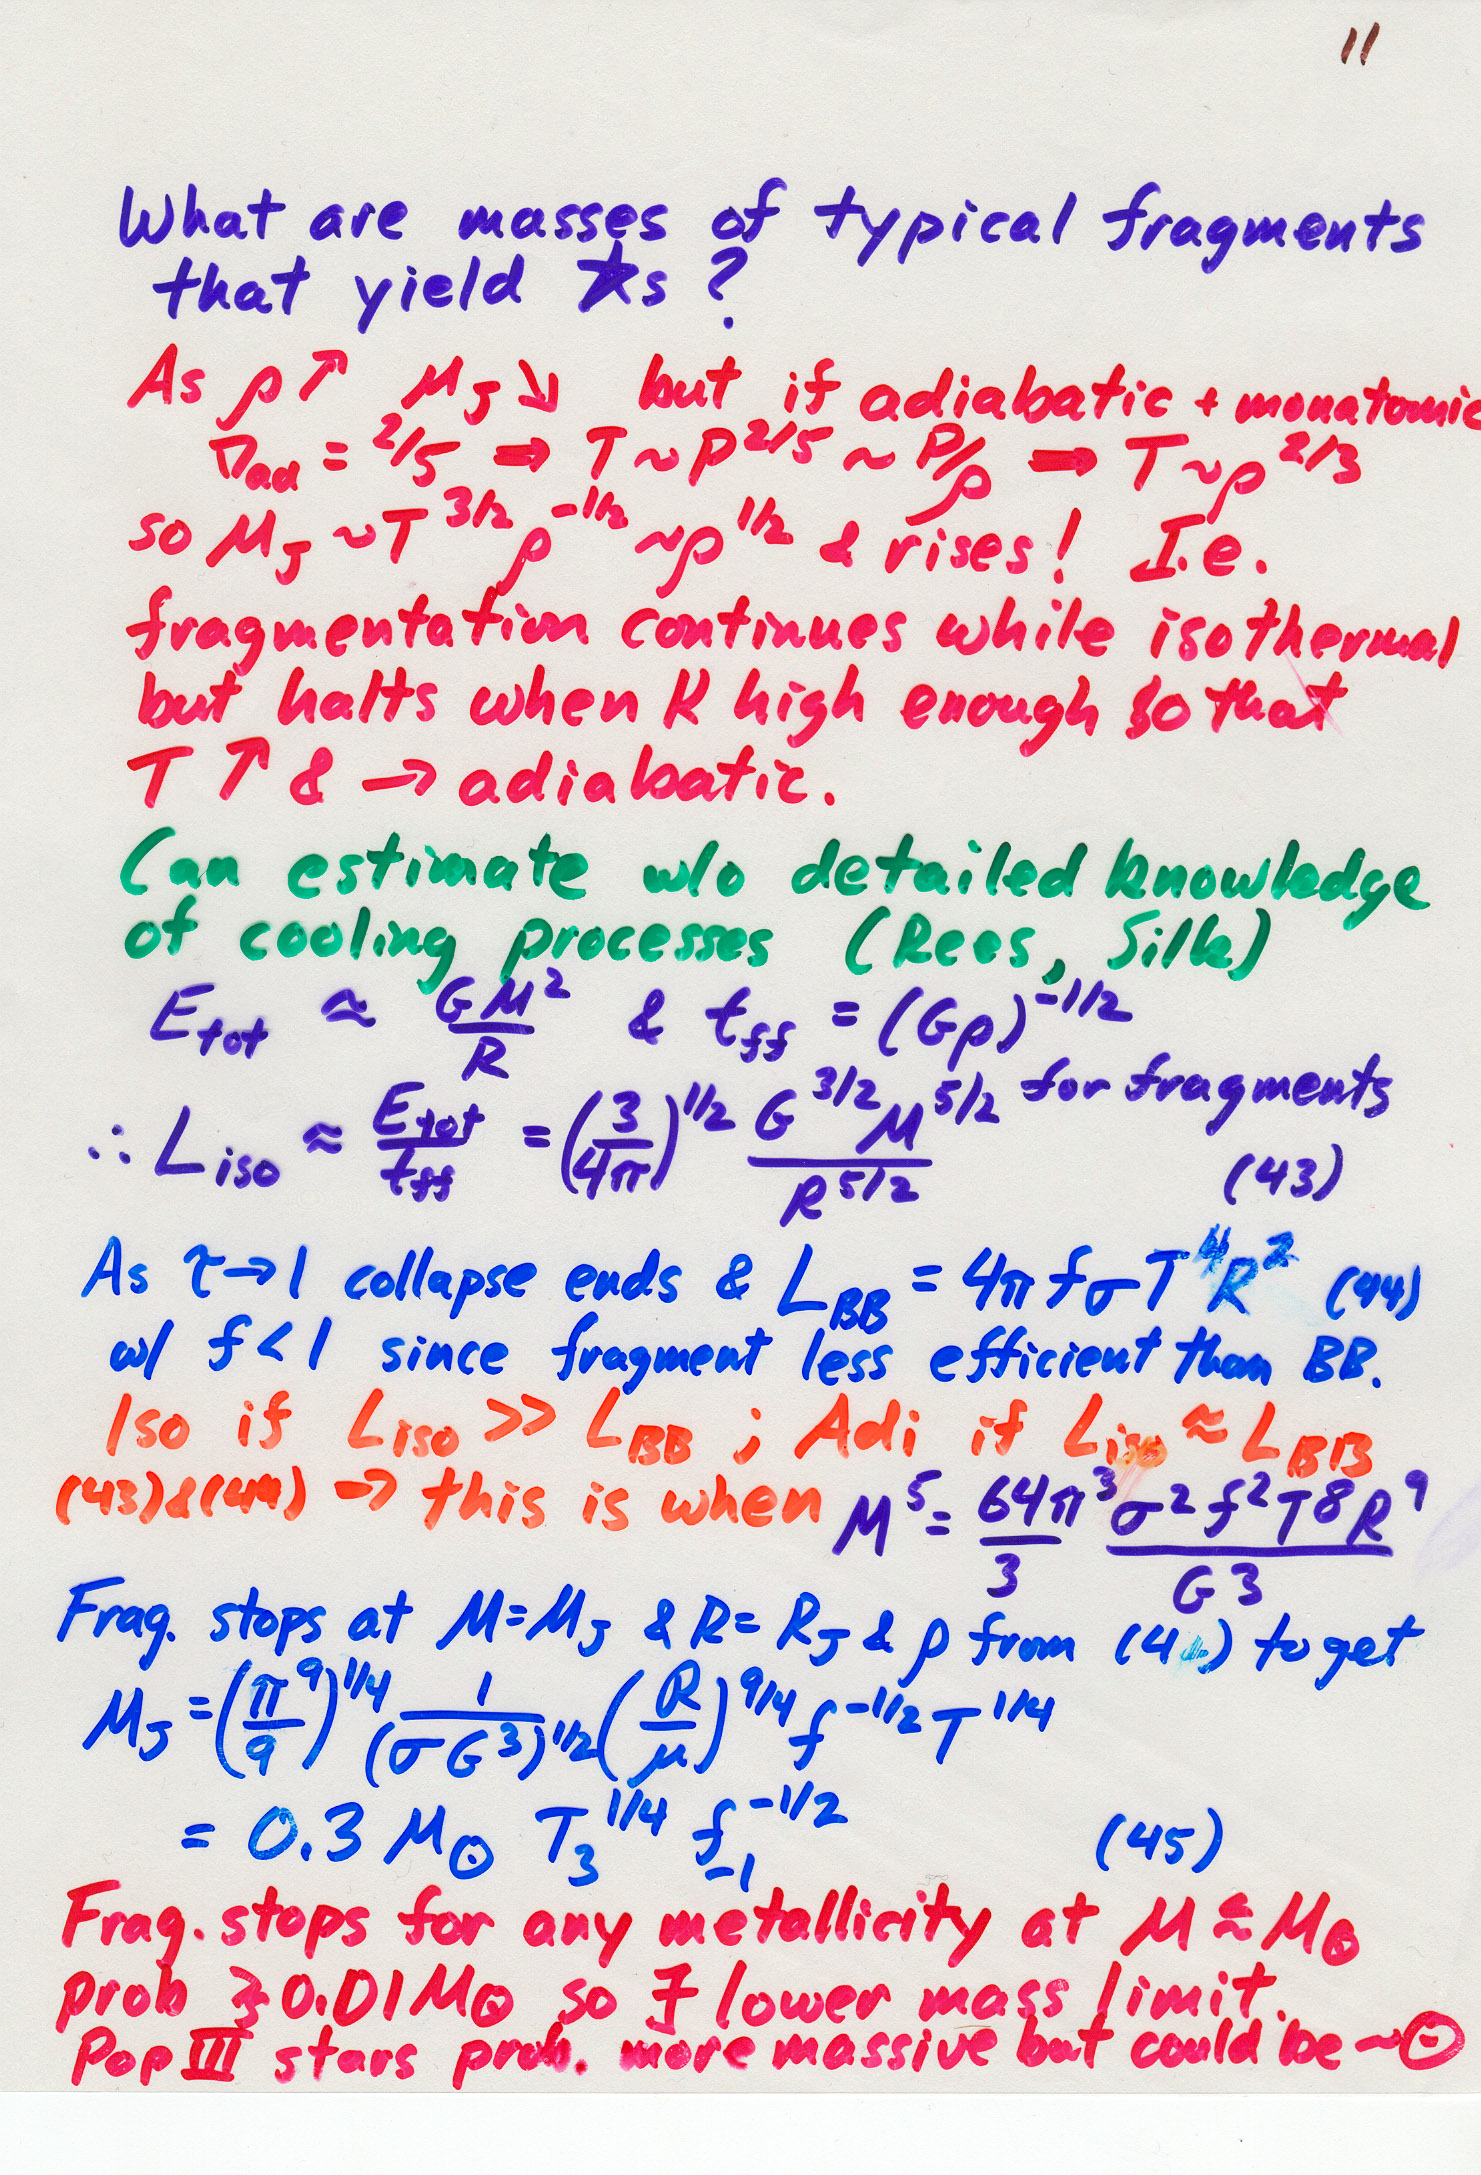 11
What are masses of typical fragments
that yield *s ?
As ρ↑ M_J ↘ but if adiabatic + monatomic
∇_ad = 2/5 ⇒ T ~ P^2/5 ~ P/ρ ⇒ T ~ ρ^2/3
so M_J ~ T^3/2 ρ^-1/2 ~ ρ^1/2 & rises! I.e.
fragmentation continues while isothermal
but halts when K high enough so that
T ↑ & → adiabatic.
Can estimate w/o detailed knowledge
of cooling processes (Rees, Silk)
E_tot ≈ GM^2/R & t_ff = (Gρ)^-1/2
for fragments
∴ L_iso ≈ E_tot/t_ff = (3/4π)^1/2 G^3/2 M^5/2 / R^5/2 (43)
As τ→1 collapse ends & L_BB = 4π f σ T^4 R^2 (44)
w/ f < 1 since fragment less efficient than BB.
Iso if L_iso >> L_BB ; Adi if L_iso ≈ L_BB
(43)&(44) → this is when M^5 = 64π^3/3 σ^2 f^2 T^8 R^9 / G^3
Frag. stops at M=M_J & R=R_J & ρ from (4 ) to get
M_J = (π^9/9)^1/4 1/(σG^3)^1/2 (R/μ)^9/4 f^-1/2 T^1/4
= 0.3 M_⊙ T_3^1/4 f_-1^-1/2 (45)
Frag. stops for any metallicity at M ≈ M_⊙
prob ≳ 0.01 M_⊙ so ∃ lower mass limit.
Pop III stars prob. more massive but could be ~⊙